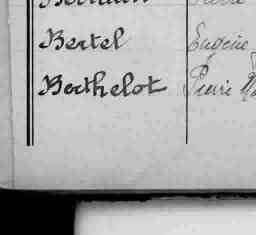 Bertel Eugène
Berthelot Pierre